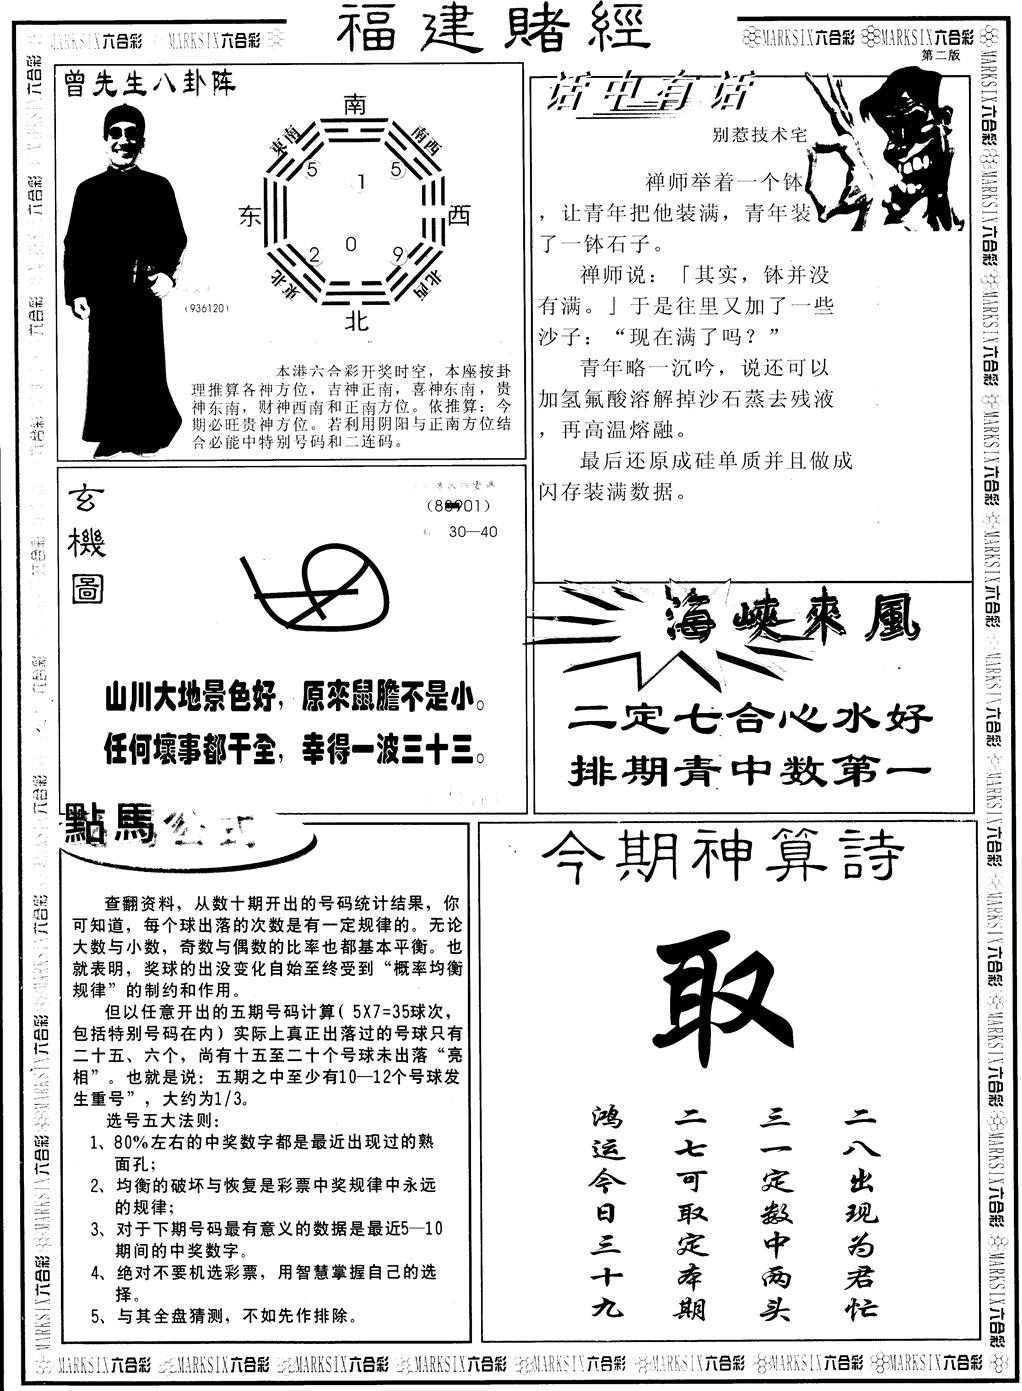 福建賭經
MARKSIX六合彩 MARKSIX六合彩
MARKSIX六合彩 MARKSIX六合彩
第二版
曾先生八卦阵
南
東南
南西
5
1
5
东
西
2
0
9
東北
北西
北
(936120)
本港六合彩开奖时空，本座按卦
理推算各神方位，吉神正南，喜神东南，贵
神东南，财神西南和正南方位。依推算：今
期必旺贵神方位。若利用阴阳与正南方位结
合必能中特别号码和二连码。
话中有话
别惹技术宅
禅师举着一个钵
，让青年把他装满，青年装
了一钵石子。
禅师说：「其实，钵并没
有满。」于是往里又加了一些
沙子：“现在满了吗？”
青年略一沉吟，说还可以
加氢氟酸溶解掉沙石蒸去残液
，再高温熔融。
最后还原成硅单质并且做成
闪存装满数据。
玄機圖
30—40
山川大地景色好，原來鼠膽不是小。
任何壞事都干全，幸得一波三十三。
海峽來風
二定七合心水好
排期青中数第一
點馬公式
查翻资料，从数十期开出的号码统计结果，你
可知道，每个球出落的次数是有一定规律的。无论
大数与小数，奇数与偶数的比率也都基本平衡。也
就表明，奖球的出没变化自始至终受到“概率均衡
规律”的制约和作用。
但以任意开出的五期号码计算( 5X7=35球次，
包括特别号码在内) 实际上真正出落过的号球只有
二十五、六个，尚有十五至二十个号球未出落“亮
相”。也就是说：五期之中至少有10—12个号球发
生重号”，大约为1/3。
选号五大法则：
1、80%左右的中奖数字都是最近出现过的熟
面孔；
2、均衡的破坏与恢复是彩票中奖规律中永远
的规律；
3、对于下期号码最有意义的数据是最近5—10
期间的中奖数字。
4、绝对不要机选彩票，用智慧掌握自己的选
择。
5、与其全盘猜测，不如先作排除。
今期神算詩
取
二八出现为君忙
三一定数中两头
二七可取定本期
鸿运今日三十九
MARKSIX六合彩 MARKSIX六合彩 MARKSIX六合彩 MARKSIX六合彩 MARKSIX六合彩 MARKSIX六合彩 MARKSIX六合彩 MARKSIX六合彩